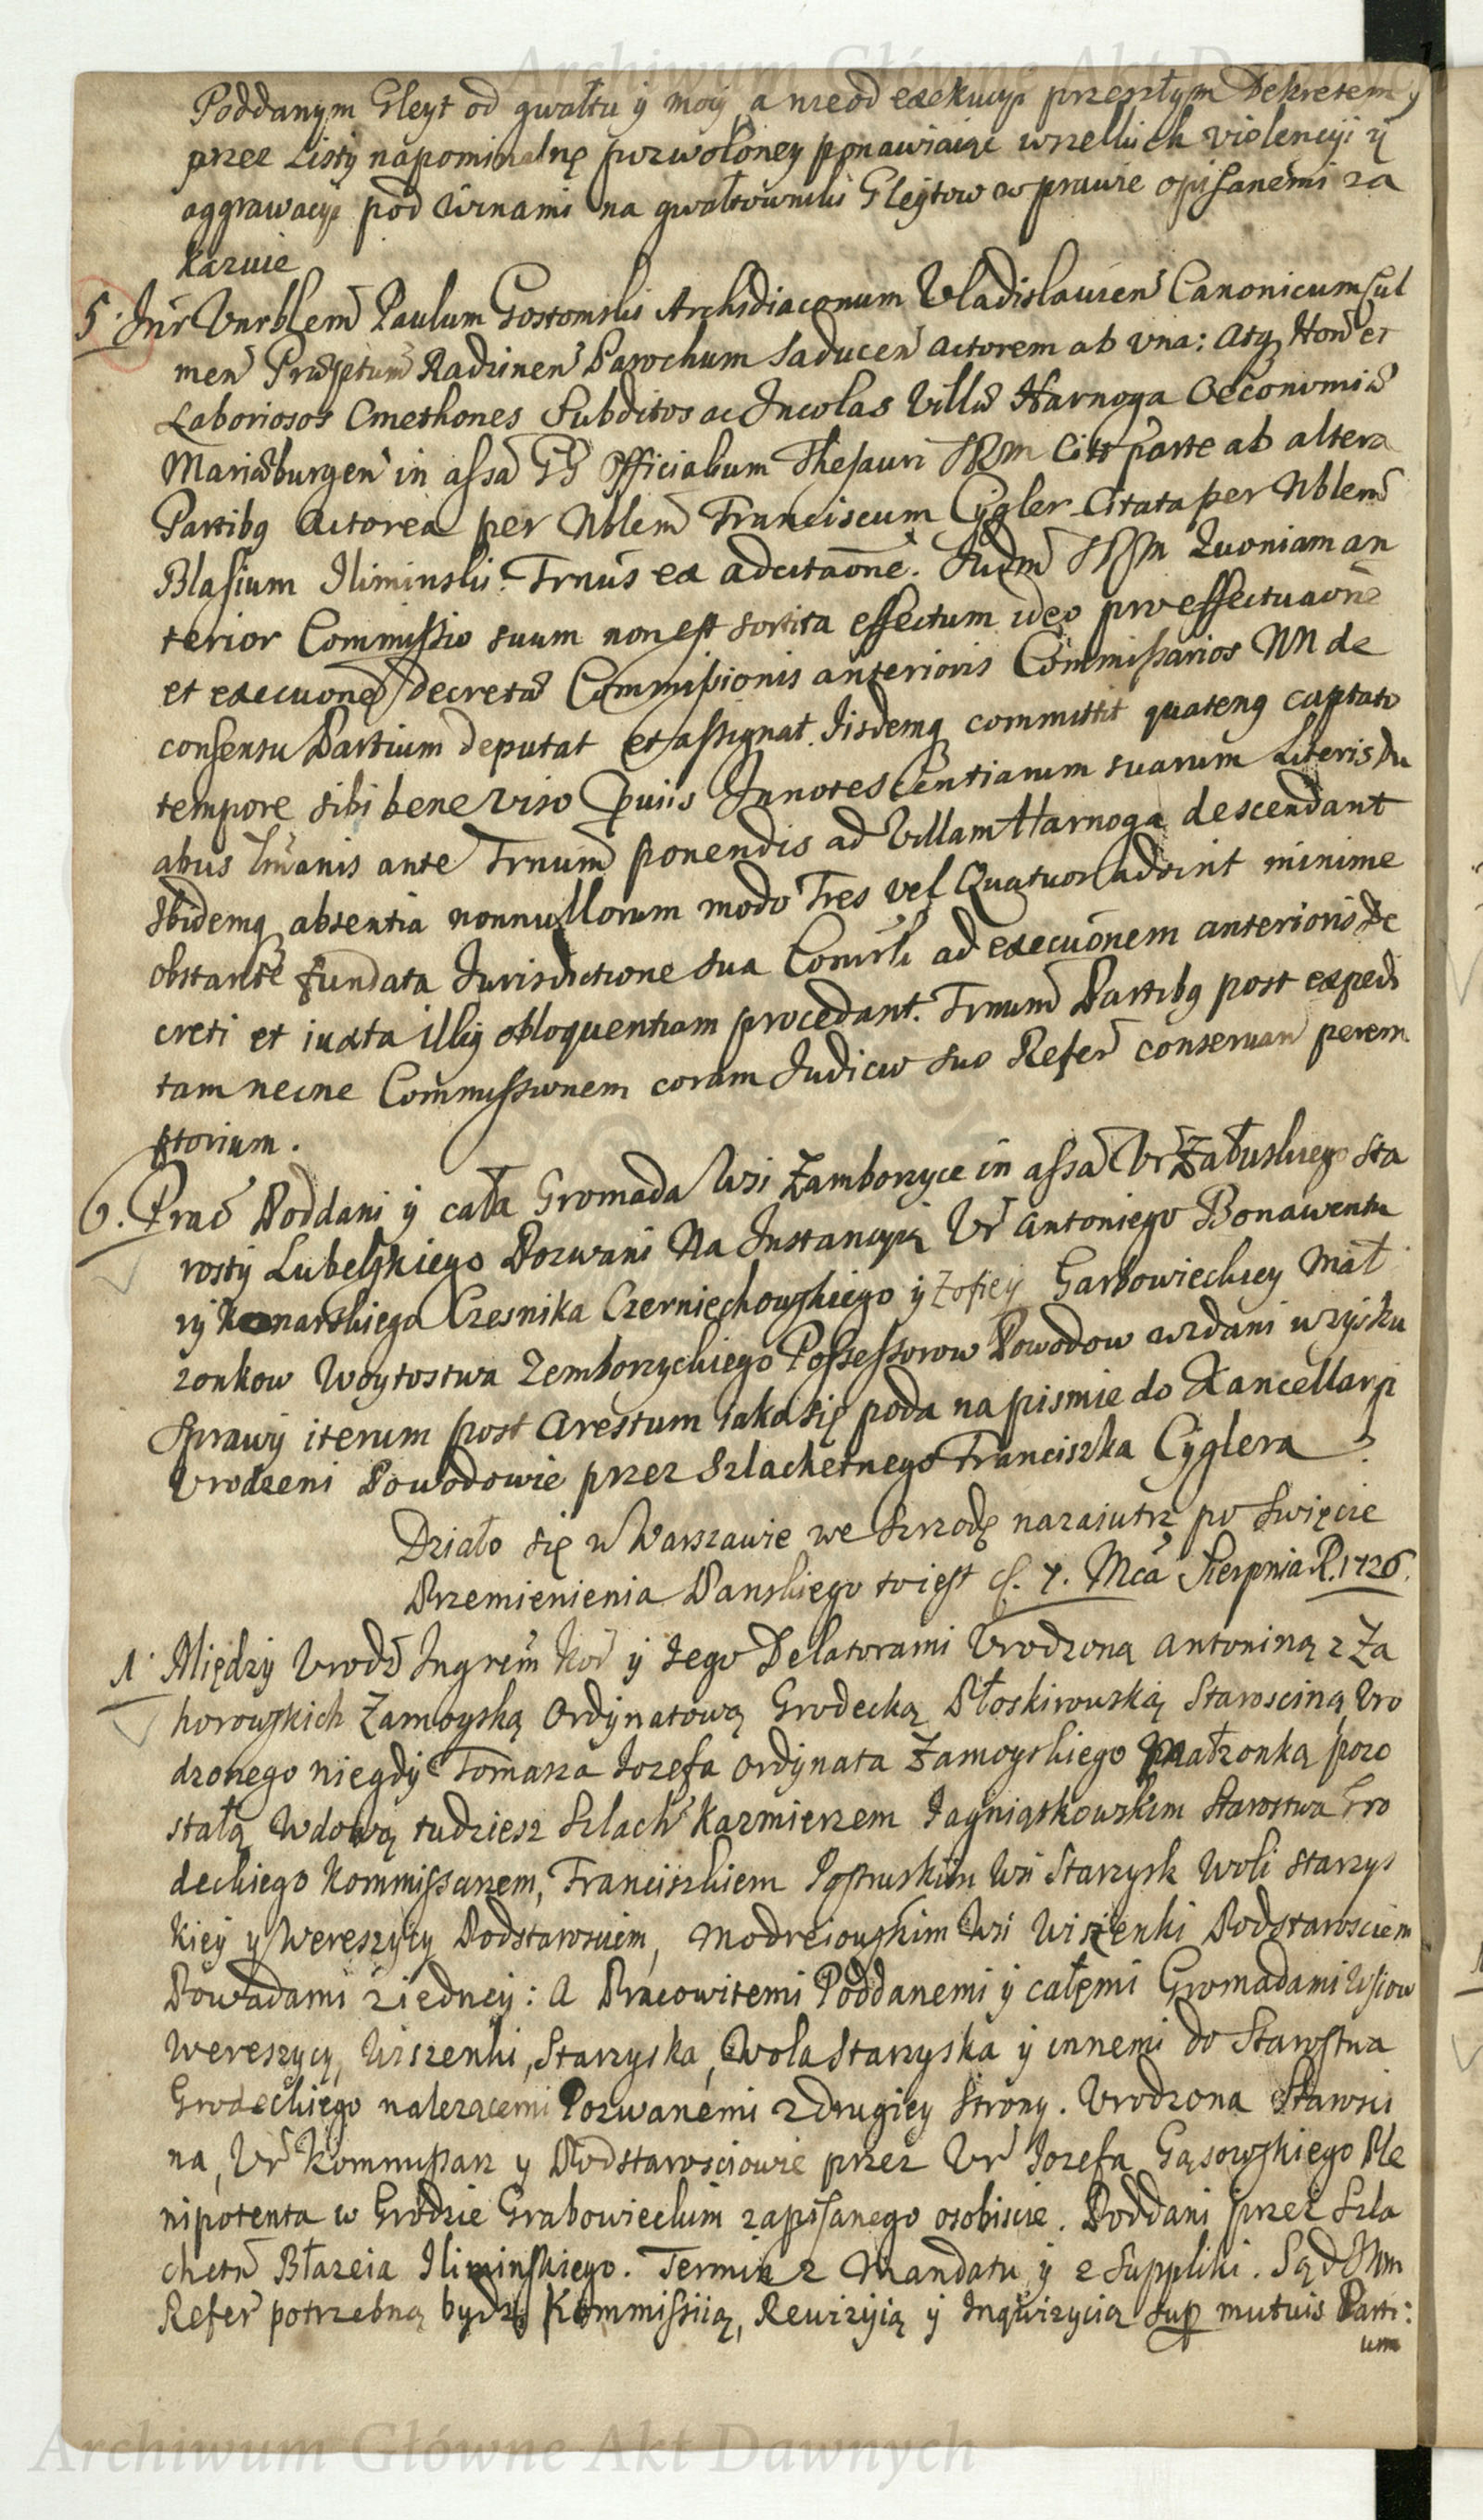 Archiwum Główne Akt Dawnych
Poddanym Gleyt od gwałtu y mocy a nieod exekucyi przeszłym Dekretem y
przez Listy napominalnę pozwoloney ponawiaiąc wszelkich violencyi y
aggrawacyi pod winami na gwałtowniki Gleytow w prawie opisanemi za
kazuie
5. Int͂r Vnrblem̃ Paulum Gostomski Archidiaconum Vladislavien͂ Canonicum Cul
men͂ Præptum͂ Radzinen͂ Parochum Saducen͂ Actorem ab vna: Atq͂ Hon͂ et
Laboriosos Cmethones Subditos ac Incolas Villæ Harnoga Oeconomiæ
Mariæburgen͂ in assã GG Officialium Thesauri SRM Citt parte ab altera
Partibq Actorea per Nblem̃ Franciscum Cygler Citata per Nblem̃
Blasium Iliminski. Trnus ex adcitaõne. Judm̃ SRM Quoniam an
terior Commissio suum non est sortita effectum ideo pro effectuaõne
et execuõne decretæ Commissionis anterioris Commissarios NN de
consensu Partium deputat et assignat. Iisdemq committit quatenq captato
tempore sibi bene viso Innotescentiarum suarum Literis Du
abus ante Trnum̃ ponendis ad Villam Harnoga descendant
Ibidemq absentia nonnullorum modo Tres vel Quatuor adsint minime
obstante fundata Jurisdictione sua ad execuõnem anterioris De
creti et iuxta illiq obloquentiam procedant. Trnum̃ Partibq post expedi
tam necne Commissionem coram Judicio suo Refer͂ conservan͂ perem
ptorium.
6. Prac͂ Poddani y cała Gromada Wsi Zamborzyce in assã Vr͂ Załuskiego Sta
rosty Lubelskiego Pozwani Na Instancyą Vr͂ Antoniego Bonawentu
ry Konarskiego Czesnika Czerniechowskiego y Zofiey Garbowieckiey Mał
zonkow Woytostwa Zemborzyckiego Possessorow Powodow wzdani w zysku
Sprawy iterum post Arestum iako się poda na pismie do Kancellaryi
Vrodzeni Powodowie przez Szlachetnego Franciszka Cyglera
Działo się w Warszawie we Szrzodę nazaiutrz po Swięcie
Przemienienia Panskiego to iest d. 7. Mcã Sierpnia R. 1726.
1. Między Vrodz͂ Ingrem̃ y Iego Delatorami Vrodzoną Antoniną z Za
horowskich Zamoyską Ordynatową Grodecką Płoskirowską Starosciną Vro
dzonego niegdy Tomasza Iozefa Ordynata Zamoyskiego Małzonką pozo
stałą Wdową tudziesz Szlach͂ Kazmierzem Iagniątkowskim Starostwa Gro
deckiego Kommissarzem, Franciszkiem Wsi Starzysk Woli Starzys
kiey y Wereszycy Podstarosciem, Modreiowskim Wsi Wiszenki Podstarosciem
Powodami ziedney: A Pracowitemi Poddanemi y całęmi Gromadami Wsiow
Wereszycy, Wiszenki, Starzyska, Wola Starzyska y innemi do Starostwa
Grodeckiego nalezącemi Pozwanemi z drugiey strony. Vrodzona Starosci
na, Vr͂ Kommissarz y Podstarosciowie przez Vr͂ Iozefa Gąsowskiego Ple
nipotenta w Grodzie Grabowieckim zapisanego osobiscie. Poddani przez Szla
chetn͂ Błazeia Iliminskiego. Termin z Mandatu y z Suppliki. Sąd JKM
Refer͂ potrzebną bydz Kommissiią, Rewizyią y Inqwizycią sup mutuis Parti:
um
Archiwum Główne Akt Dawnych